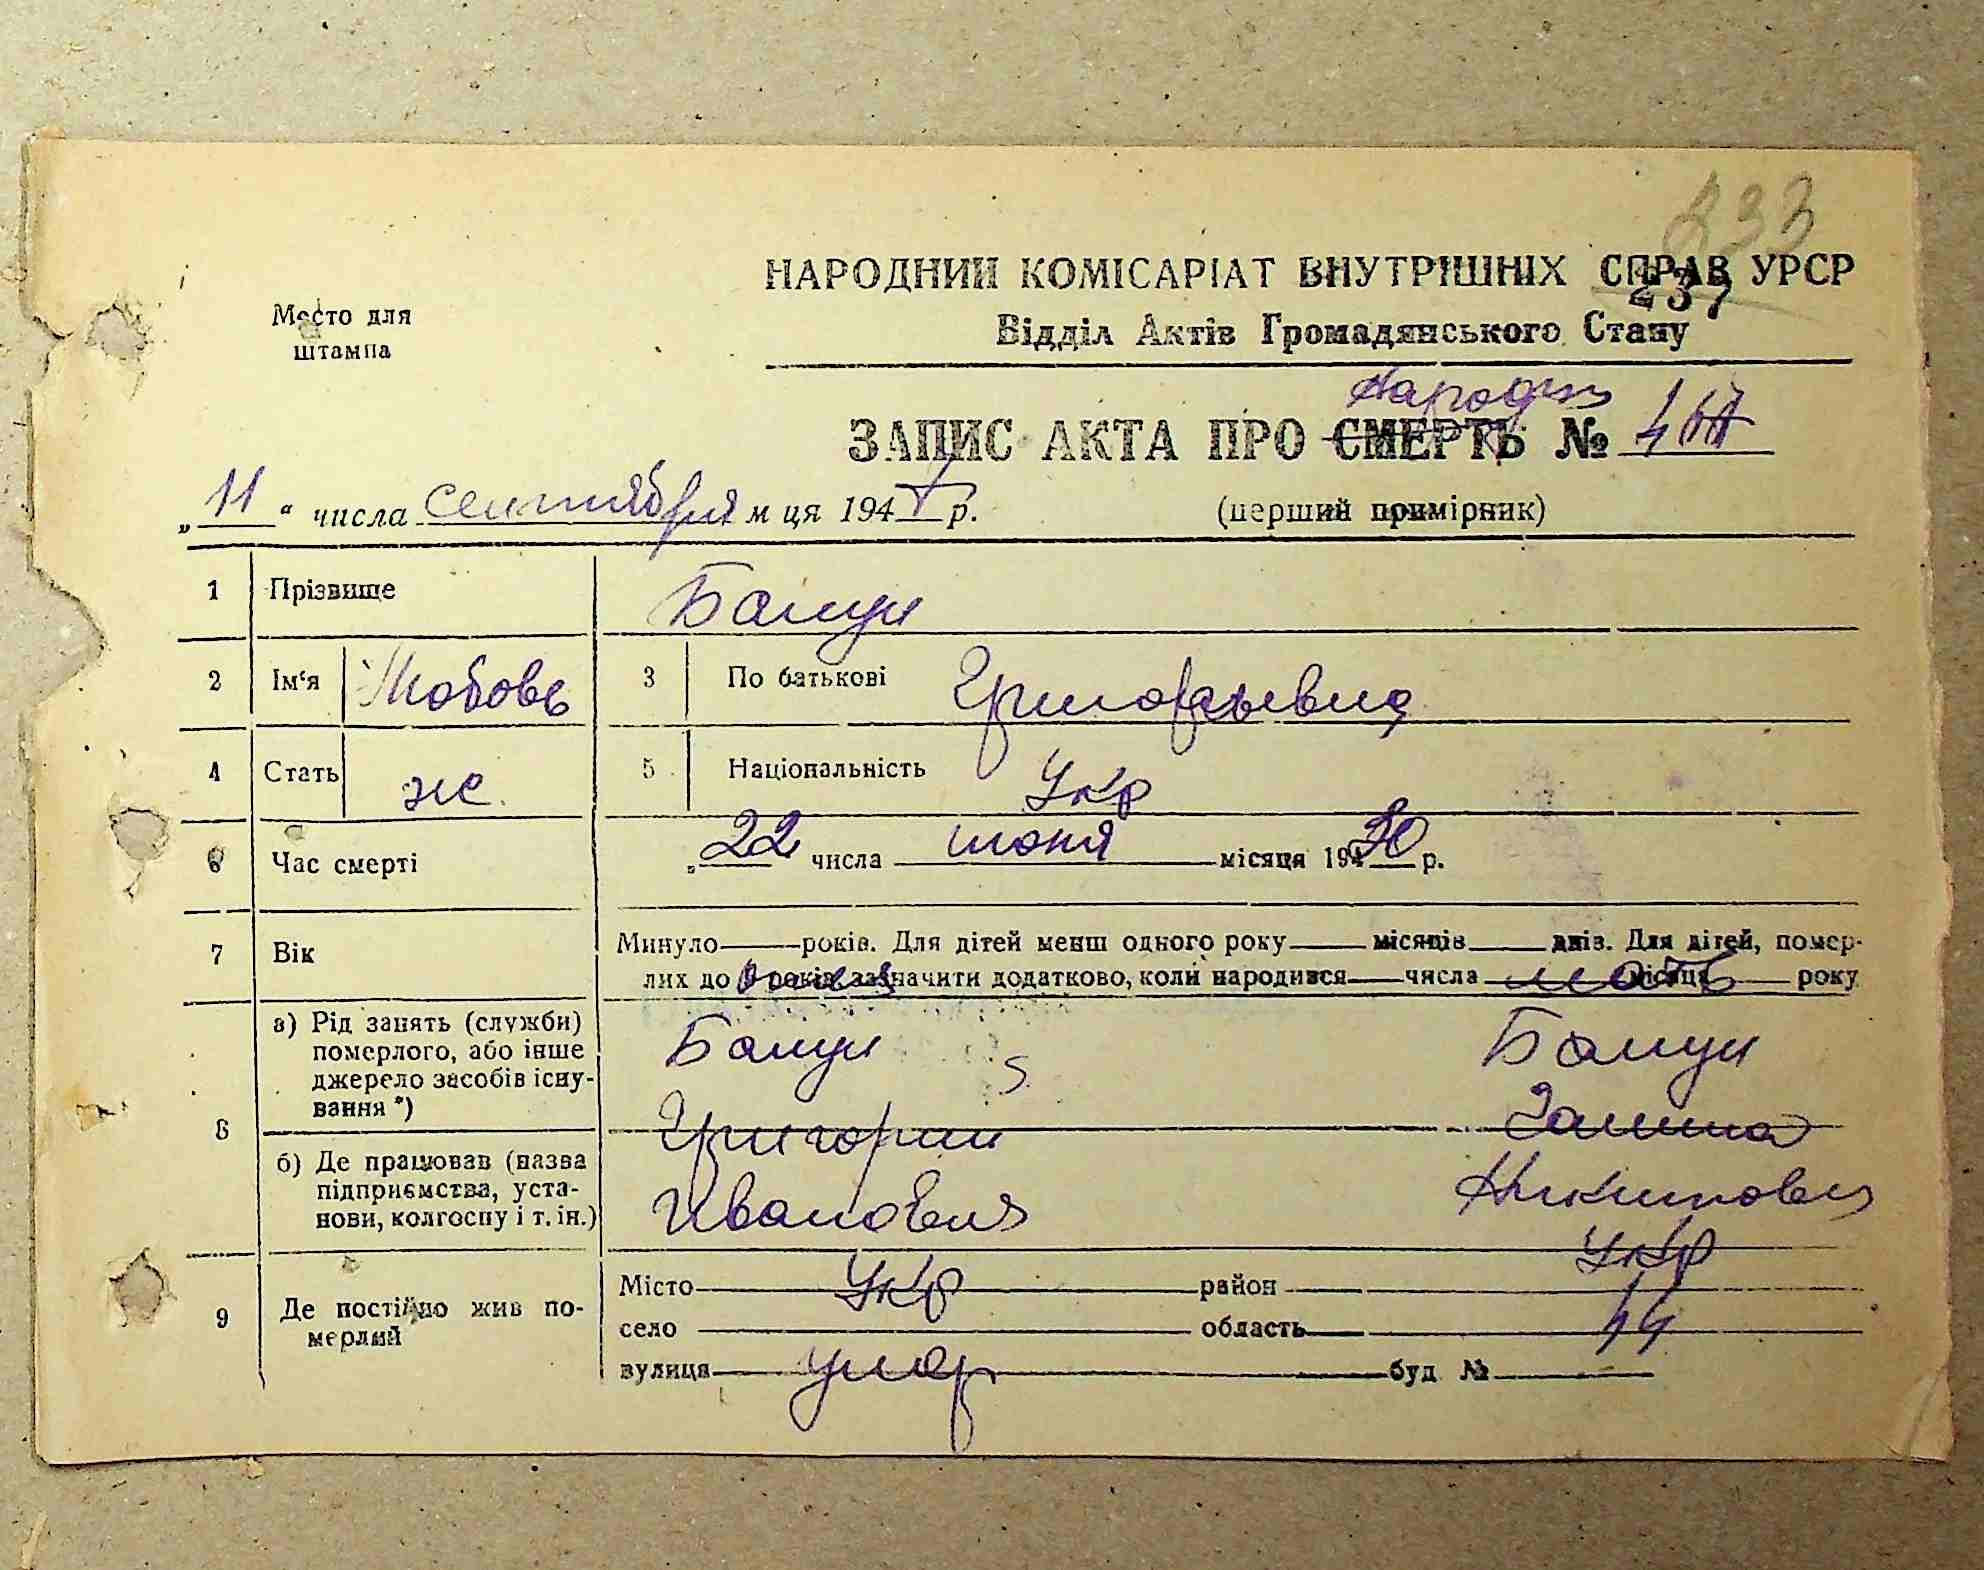 233
НАРОДНИЙ КОМІСАРІАТ ВНУТРІШНІХ СПРАВ УРСР
237
Место для
штампа
Відділ Актів Громадянського Стану
ЗАПИС АКТА ПРО СМЕРТЬ №
„11“ числа сентября м ця 194 р.
(перший примірник)
1 Прізвище
2 Ім‘я Любовь 3 По батькові Григорьевна
4 Стать ж 5 Національність Укр
6 Час смерті „22 числа июня місяця 19430 р.
7 Вік Минуло — років. Для дітей менш одного року — місяців — днів. Для дітей, помер-
лих до років, зазначити додатково, коли народився — числа мать місяця — року
8 а) Рід занять (служби)
померлого, або інше
джерело засобів існу-
вання *)
б) Де працював (назва
підприємства, уста-
нови, колгоспу і т. ін.)
Григорий
Иванович
Галина
Укр
9 Де постійно жив по-
мерлий
Місто Укр район
село область 44
вулиця буд №